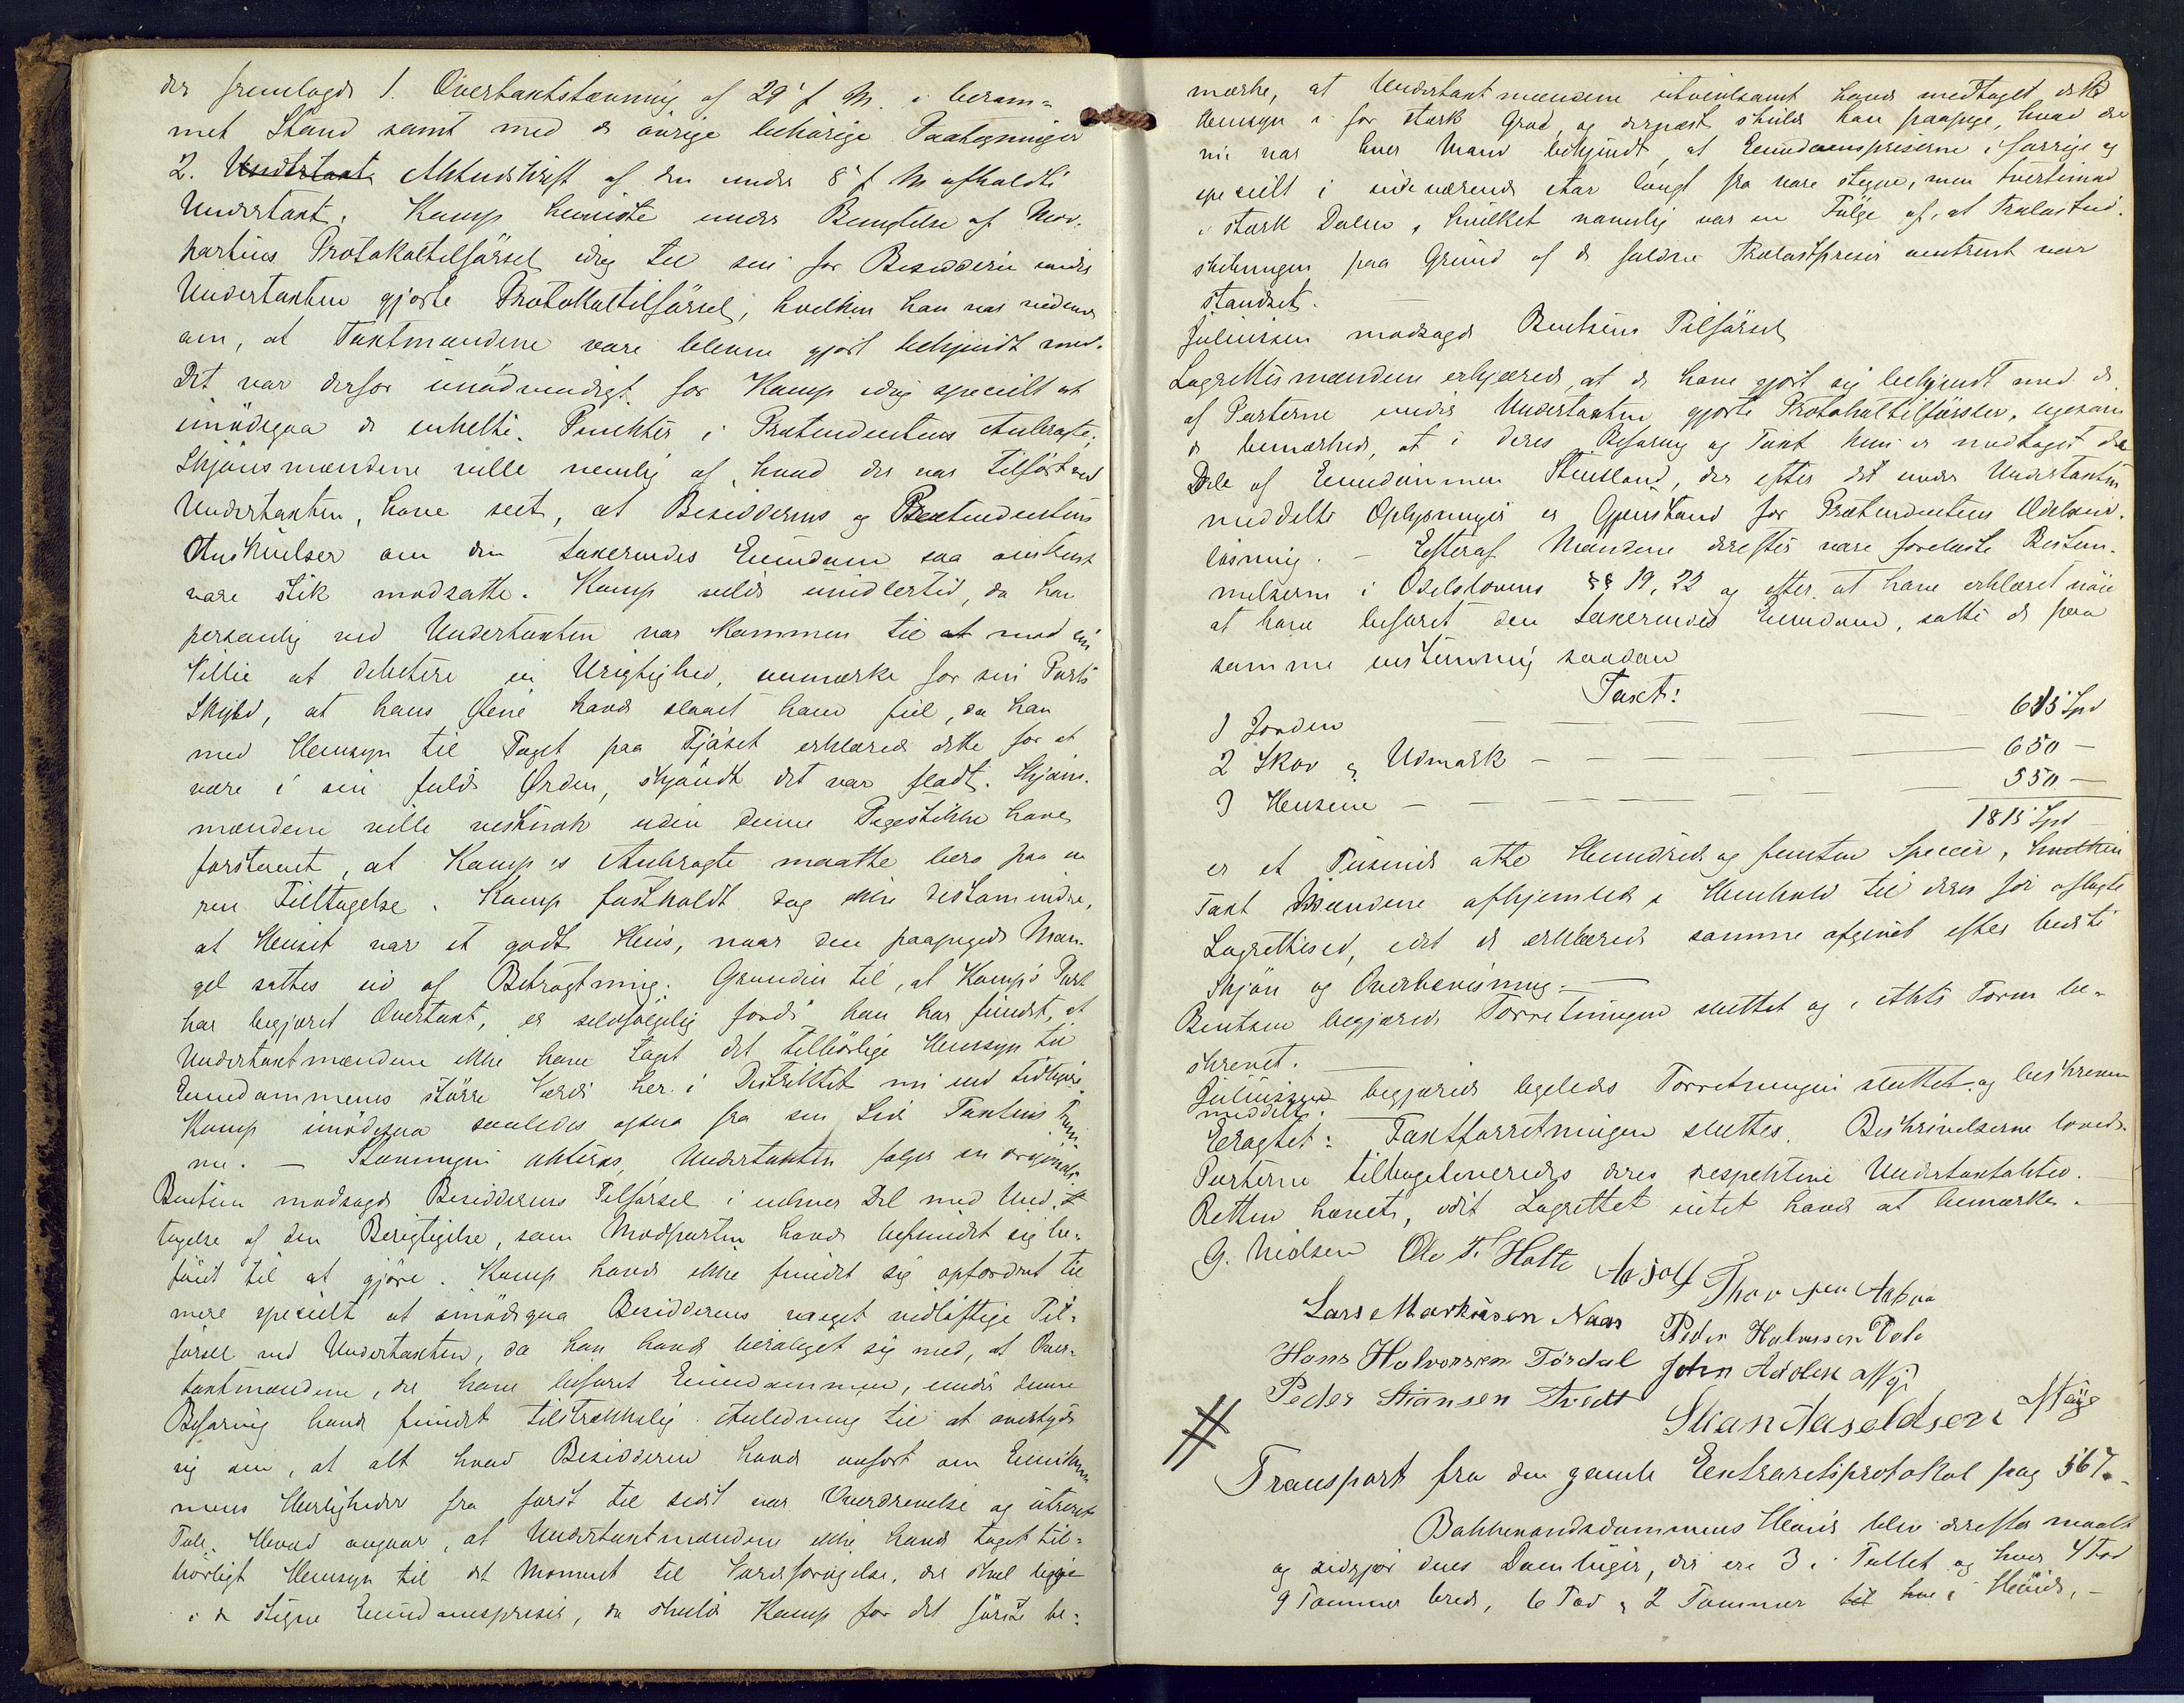 der fremlagde 1. Overtaxtstævning af 29' f. M. i beram=
met Stand samt med de øvrige behørige Paategninger
2. Undertaxt Aktudskrift af den under 8' f M afholdte
Undertaxt. Kamp henviste under Benegtelse af Mod-
partens Protokoltilførsel idag til sin for Besidderen under
Undertaxten gjorte Protokoltilførsel, hvilken han var vidende
om, at Taxtmændene vare blevne gjort bekjendt med.
Det var derfor unødvendigt for Kamp idag specielt at
imødegaa de enkelte Punkter i Prætendentens Anbragte;
Skjønsmændene ville nemlig af, hvad der var tilført ved
Undertaxten, have seet, at Besidderens og Prætendentens
Anskuelser om den taxerendes Eiendom saa omtrent
vare stik modsatte. Kamp vilde imidlertid, da han
personlig ved Undertaxten var kommen til at mod sin
Villie at debitere en Urigtighed, bemærke for sin Parts
Skyld, at hans Øine havde slaaet ham feil, da han
med Hensyn til Taget paa Fjøset erklærede dette for at
være i sin fulde Orden, skjøndt det var fladt. Skjøns-
mændene ville vistnok uden denne Tagestikke have
forstaaet, at Kamp's Anbragte maatte bero paa en
ren Feiltagelse. Kamp fastholdt dog ikke destomindre,
at Huset var et godt Huus, naar den paapegede Man-
gel sattes ud af Betragtning. Grunden til, at Kamp's Part
har begjæret Overtaxt, er selvfølgelig fordi han har fundet, at
Undertaxtmændene ikke have taget det tilbørlige Hensyn til
Eiendommenes større Værdi her i Distriktet nu end tidligere.
Kamp imødesaa saaledes ogsaa fra sin Side Taxtens Frem
me. — Stævningen akteres, Undertaxten følger in originali.
Bentsen modsagde Besidderens Tilførsel i enhver Del med Und-
tagelse af den Berigtigelse, som Modparten havde befundet sig be-
føiet til at gjøre. Kamp havde ikke fundet sig opfordret til
mere specielt at imødegaa Besidderens meget vidløftige Til-
førsel ved Undertaxten, da han havde beroliget sig med, at Over-
taxtmændene, der have befaret Eiendommen, under denne
Befaring havde fundet tilstrækkelig Anledning til at overtyde
sig om, at alt hvad Besidderen havde anført om Eiendom
mens Herligheder fra først til sidst var Overdrevelse og
Tale. Hvad angaar, at Undertaxtmændene ikke havde taget til-
børligt Hensyn til det Moment til Værdiforøgelse, der skal ligge
i de stigne Eiendomspriser, da skulde Kamp for det første be-
mærke, at Undertaxtmændene utvivlsomt havde medtaget dette
Hensyn i for stærk Grad, og dernæst skulde han paapege, hvad der
nu var hver Mand bekjendt, at Eiendomspriserne i forrige og
specielt i indeværende Aar langt fra vare stegne, men tvertimod
i stærk Dalen, hvilket navnlig var en Følge af, at Trælastud-
skibningen paa Grund af de faldne Trælastpriser omtrent var
standset.
Juliussen modsagde Bentsens Tilførsel
Lagrettesmændene erkjærede, at de have gjort sig bekjendt med de
af Parterne under Undertaxten gjorte Protokoltilførsler, ligesom
de bemærkede, at i deres Befaring og Taxt kun er medtaget den
Del af Eiendommen Stensland, der efter det under Undertaxten
meddelte Oplysninger er Gjenstand for Prætendentens Odels
løsning. — Efterat Mændene derefter vare forelæste Bestem-
melserne i Odelslovens §§ 19, 22 og efter at have erklæret nøie
at have befaret den taxerendes Eiendom, satte de paa
samme enstemmig saadan
Taxt:
1 Jorden — — — 615 Spd
2 Skov og Udmark — — — 650 —
3 Husene — — — 550 —
1815 Spd
er et Tusinde otte Hundrede og femten Specier, hvilken
Taxt Mændene afhjemlede i Henhold til deres før aflagte
Lagrettesed, idet de erklærede samme afgivet efter bedste
Skjøn og Overbevisning. —
Bentsen begjærede Forretningen sluttet og i Akts Form be-
skrevet.
Juliussen begjærede ligeledes Forretningen sluttet og beskreven
meddelt.
Eragtet: Taxtforretningen sluttes. Beskrivelserne loveds.
Parterne tilbageleveredes deres respektive Undertaxtakter.
Retten hævet, idet Lagrettet intet havde at bemærke. —
G. Nielsen Ole T. Holte
Lars Markusen Næs Peder Halvorsen Dale
Hans Halvorsen Tördal John Adolsen
Peder Stiansen Tvedt Stian Aaseldsen
#
Transport fra den gamle Extraretsprotokol pag 567.
Bakkevandsdammens Høide blev derefter maalt
og udgjør dens Damluger, der ere 3 i Tallet og hver 4 Fod
9 Tommer bred, 6 Fod og 2 Tommer i Høide, —